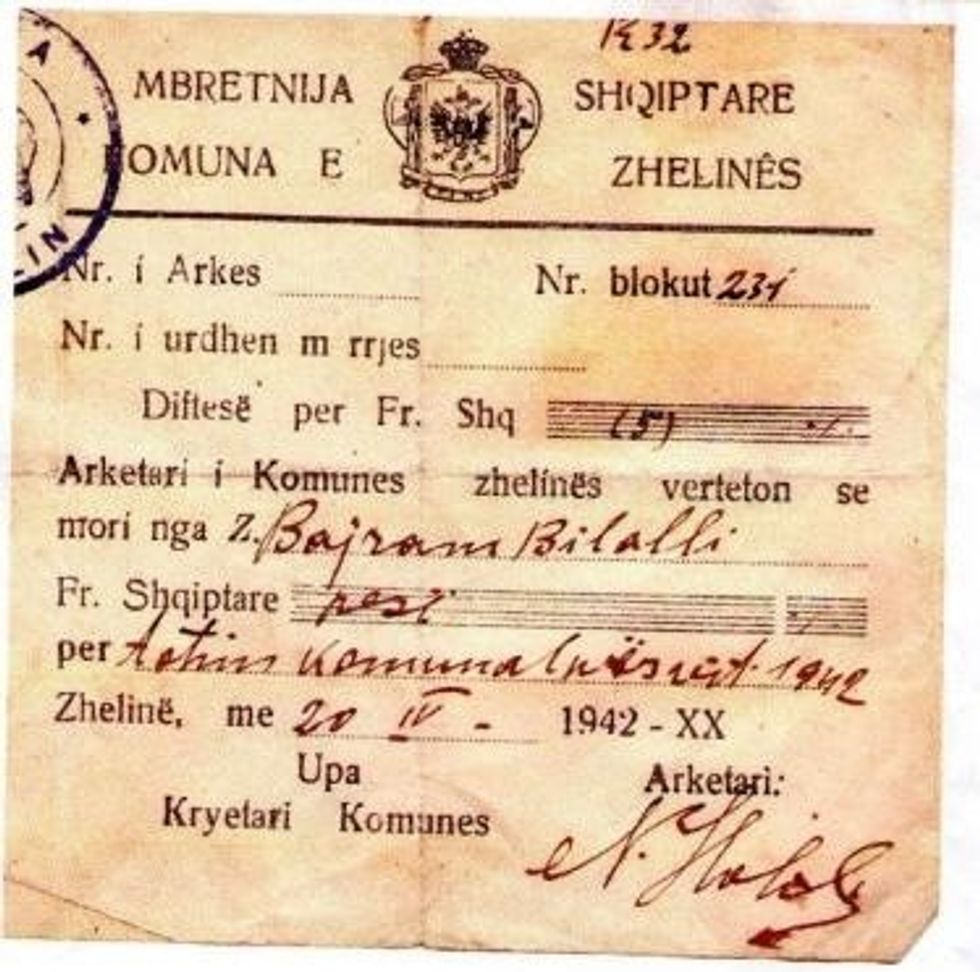 R 32
MBRETNIJA SHQIPTARE
KOMUNA E ZHELINËS
A *
LIN
Nr. i Arkes
Nr. blokut 231
Nr. i urdhen m rrjes
Diftesë per Fr. Shq (5)
Arketari i Komunes zhelinës verteton se
mori nga Z. Bajram Bilalli
Fr. Shqiptare pesë
per 1942
Zhelinë, me 20 IV - 1942 - XX
Upa Arketari:
Kryetari Komunes